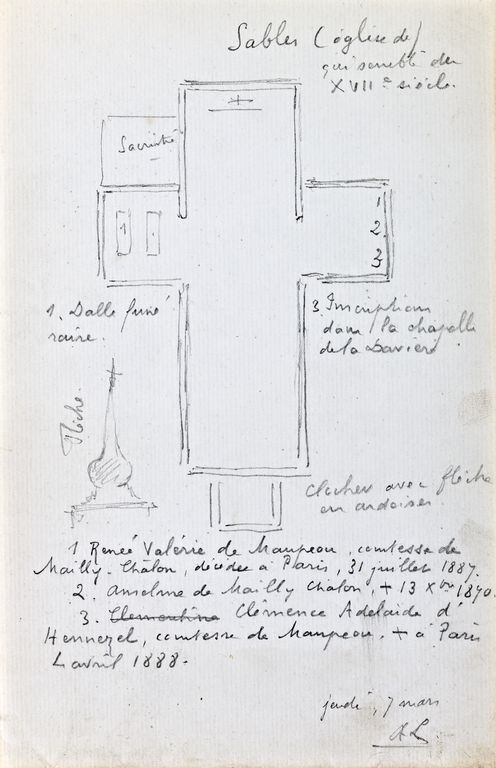 Sables (église de)
qui semble du
XVIIe siècle.
Sacristie
1
1
2
3
1. Dalle funé
raire.
3. Inscriptions
dans la chapelle
de la
Flèche.
Clocher avec flèche
en ardoises
1 Reneé Valérie de Maupeou, comtesse de
Mailly-Châlon, décédée à Paris, 31 juillet 1887.
2. Anselme de Mailly Chalon, + 13 Xbre 1870.
3. Clementine Clémence Adelaïde d'
Hennezel, comtesse de Maupeou, + à Paris
4 avril 1888.
jeudi, 7 mars